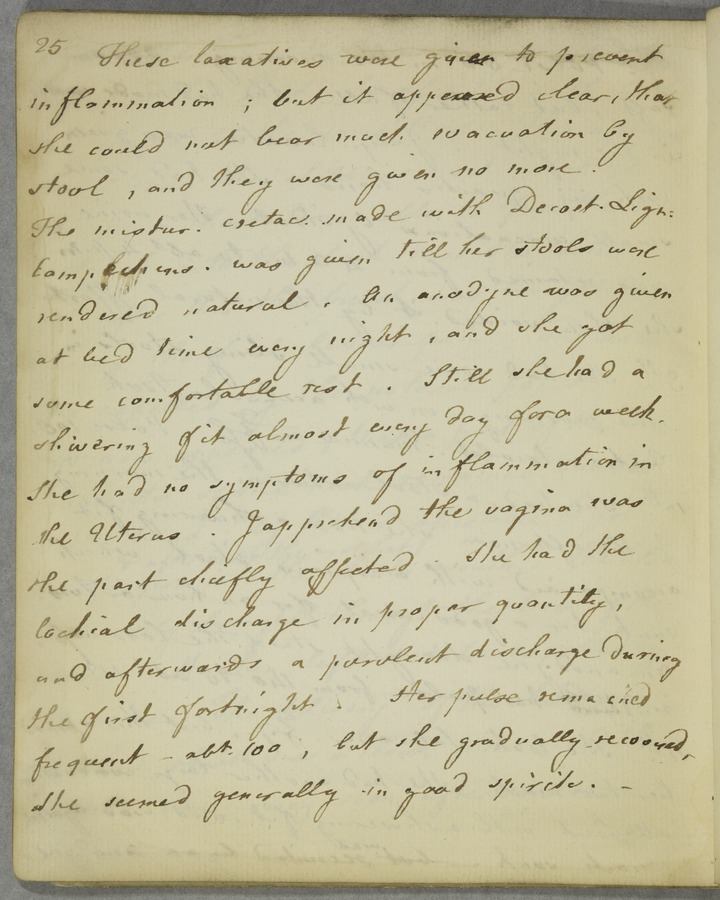 25
These laxatives were given to prevent
inflammation ; but it appeared clear, that
she could not bear much evacuation by
stool , and they were given no more .
The mistur. cretac. made with Decoct. Lign:
Campechens. was given till her stools were
rendered natural . An anodyne was given
at bed time every night , and she got
some comfortable rest . Still she had a
shivering fit almost every day for a week.
She had no symptoms of inflammation in
the Uterus . I apprehend the vagina was
the part chiefly affected . She had the
lochial discharge in proper quantity ,
and afterwards a purulent discharge during
the first fortnight . Her pulse remained
frequent - abt. 100 , but she gradually recovered,
She seemed generally in good spirits. -